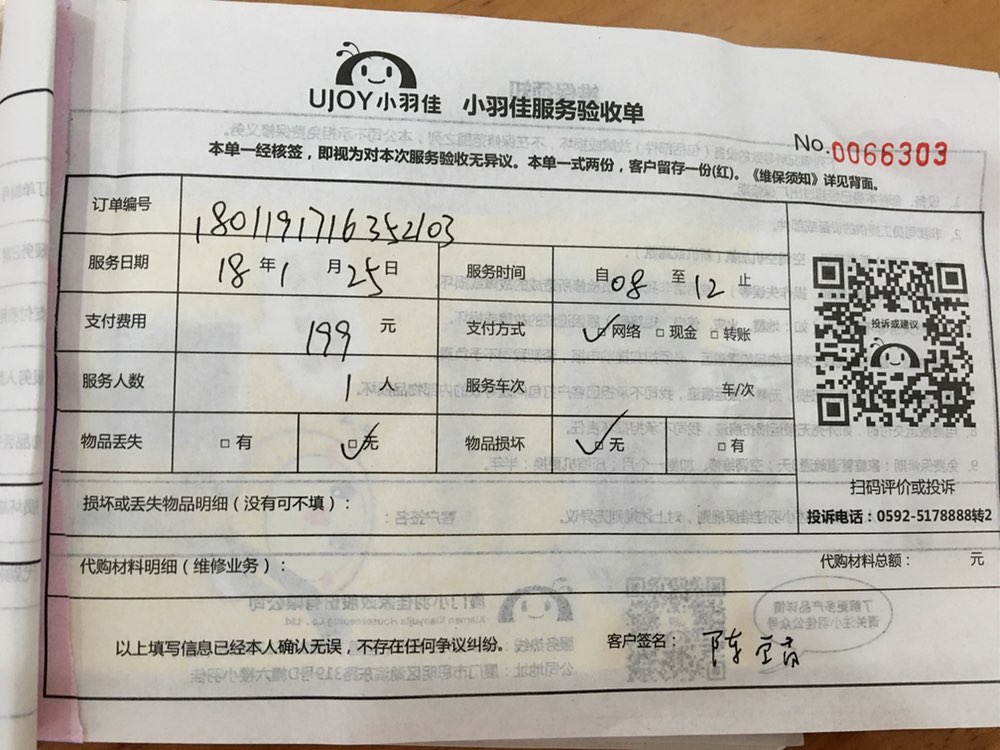 UJOY小羽佳 小羽佳服务验收单
No.0066303
本单一经核签，即视为对本次服务验收无异议。本单一式两份，客户留存一份(红)。《维保须知》详见背面。
订单编号 1801191716352103
服务日期 18年1月25日 服务时间 自08至12止
支付费用 199元 支付方式 ☑网络 □现金 □转账
服务人数 1人 服务车次 车/次
物品丢失 □有 ☑无 物品损坏 ☑无 □有
投诉或建议
扫码评价或投诉
投诉电话：0592-5178888转2
损坏或丢失物品明细（没有可不填）：
代购材料明细（维修业务）： 代购材料总额： 元
以上填写信息已经本人确认无误，不存在任何争议纠纷。 客户签名： 陈